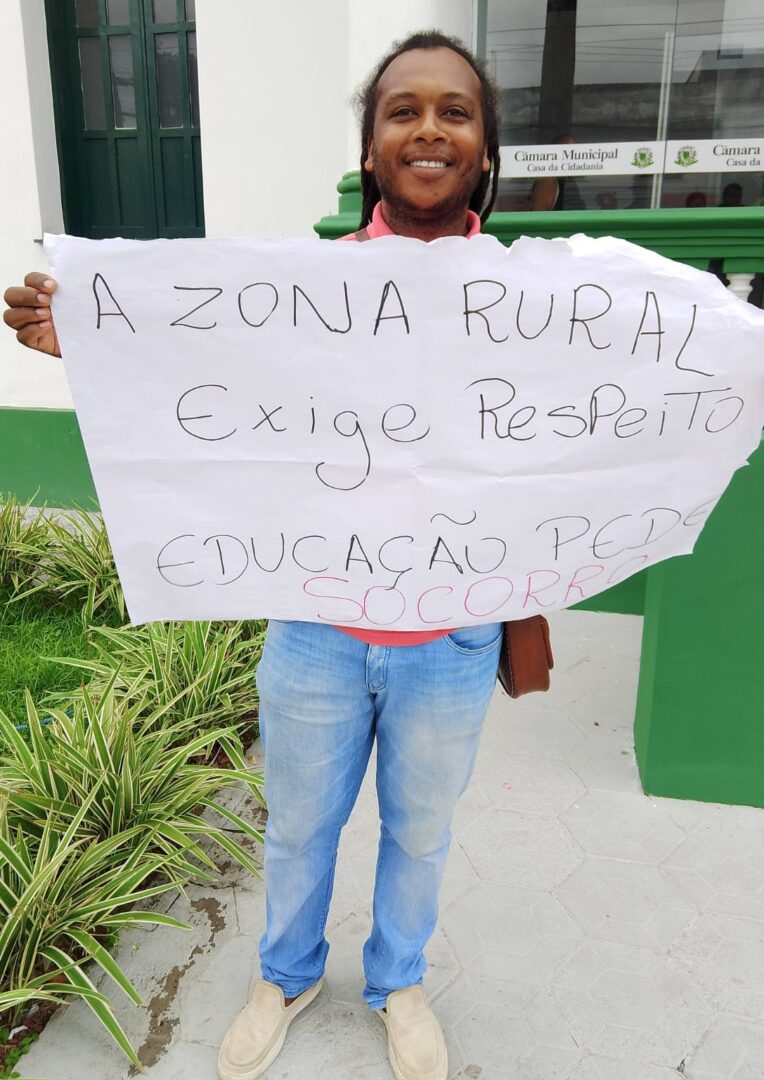 Câmara Municipal
Casa da Cidadania
Câmara
Casa da
A ZONA RURAL
Exige Respeito
EDUCAÇÃO PEDE
SOCORRO